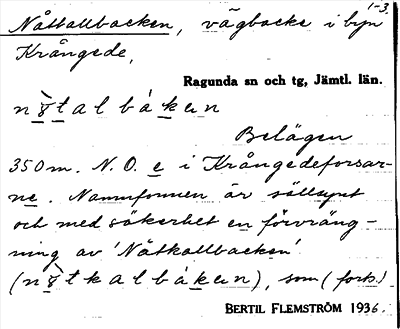 Nåttallbacken, vägbacke i byn
1-3.
Krångede,
Ragunda sn och tg, Jämtl. län.
Belägen
350m. N. O. e i Krångedeforsar-
ne. Namnformen är sällsynt
och med säkerhet en förvräng-
ning av 'Nåtkallbacken'
som (forts.)
BERTIL FLEMSTRÖM 1936.